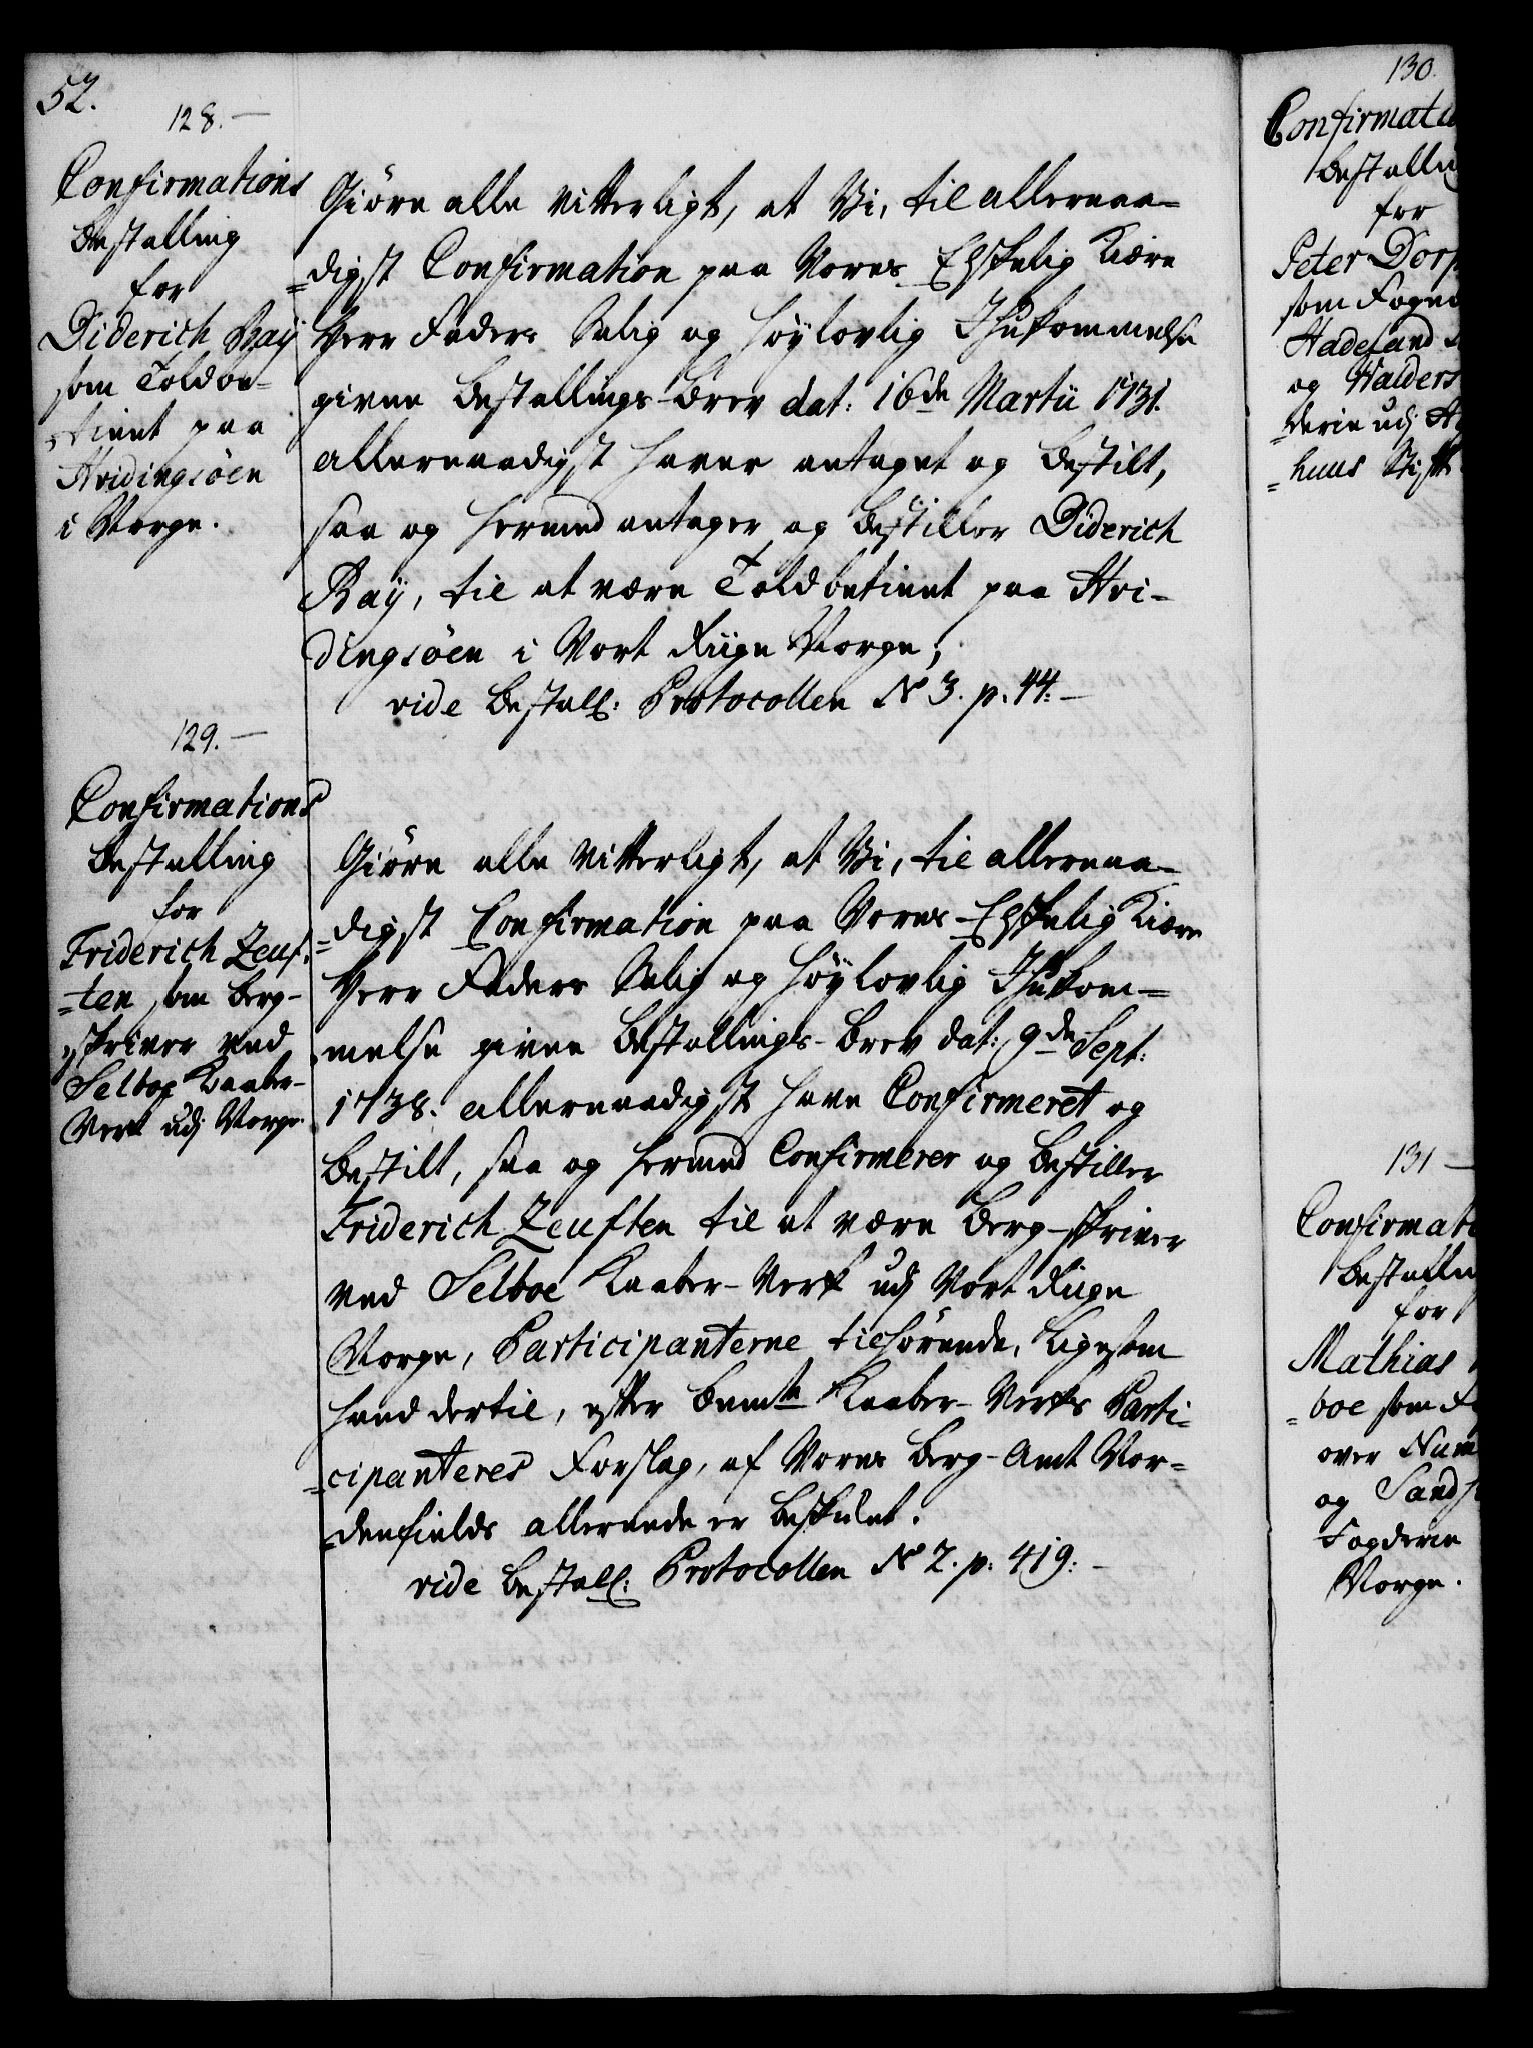 52.
128.
Confirmations
Bestalling
for
Diderich Baÿ
som Toldbe-
=tient paa
Hvidingsöen
i Norge.
Giöre alle vitterligt, at Vi, til allernaa-
=digst Confirmation paa Vores Elskelig Kiære
Herr Faders Salig og Höÿlovlig Ihukommelse
givne Bestallings-Brev dat: 16de Martii 1731.
allernaadigst haver antaget og bestilt,
saa og hermed antager og bestiller Diderich
Baÿ, til at være Toldbetient paa Hvi-
dingsöen i Vort Riige Norge;
vide Bestall: Protocollen No 3. p. 44.
129.
Confirmations
Bestalling
for
Friderich Zeuf-
=ten som Berg-
skriver ved
Selboe Kaaber-
Verk udj Norge.
Giöre alle vitterligt, at Vi, til allernaa-
=digst Confirmation paa Vores Elskelig Kiære
Herr Faders Salig og Höÿlovlig Ihukom-
melse givne Bestallings-Brev dat: 9de Sept:
1738. allernaadigst have Confirmeret og
bestilt, saa og hermed Confirmerer og bestiller
Friderich Zeuften til at være Berg-skriver
ved Selboe Kaaber-Verk udj Vort Riige
Norge, Participanterne tilhörende, ligesom
hand dertil, efter bemte Kaaber-Verks Parti-
=cipanteres Forslag, af Vores Berg-Amt Nor-
=denfields allerede er beskiket.
vide Bestall: Protocollen No 2. p. 419.
130.
Confirmati
Bestalling
for
Peter Dorp
som Foged
Hadeland
og Walders
=derie udj A
=huus Stift
131
Confirmati
Bestalling
for
Mathias
=boe som Fo
over Num
og Sands
Fogderie
Norge.